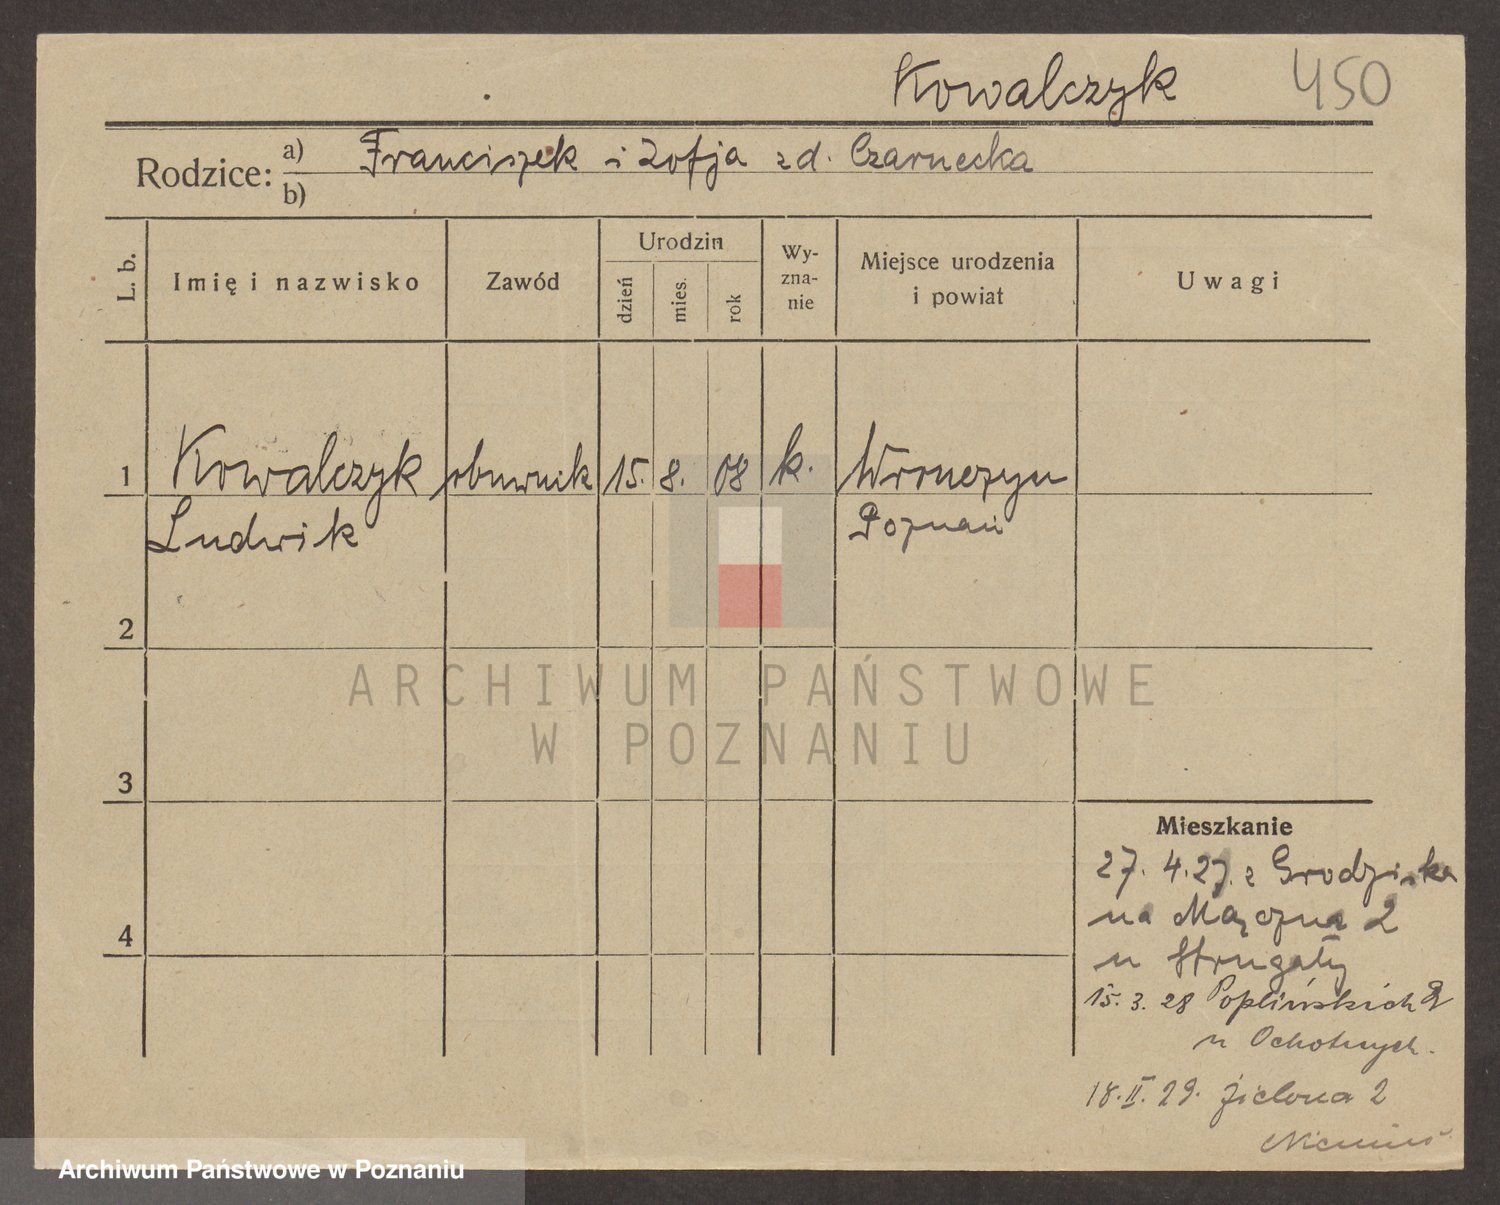 Kowalczyk 450
Rodzice: a) Franciszek i Zofja zd. Czarnecka
b)
L. b. Imię i nazwisko Zawód Urodzin dzień mies. rok Wy-zna-nie Miejsce urodzenia i powiat Uwagi
1 Kowalczyk obuwnik 15. 8. 08 k. Wronczyn
Ludwik Poznań
2
3
4
Mieszkanie
27. 4. 27. z Grodziska
na Mączna 2
u Strugały
15. 3. 28 Poplińskich 9
u Ochotnych.
18. II. 29. Zielona 2
ARCHIWUM PAŃSTWOWE
W POZNANIU
Archiwum Państwowe w Poznaniu